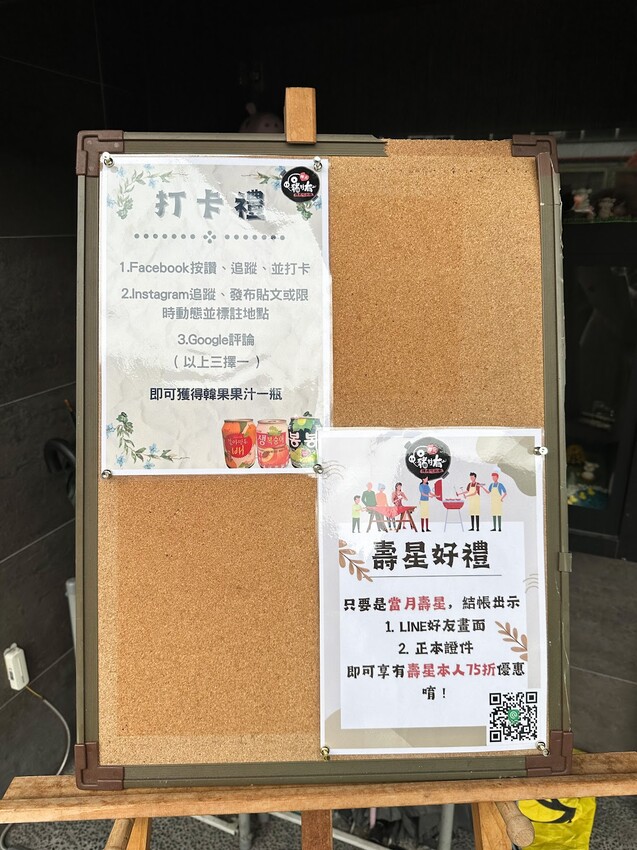 打卡禮
1.Facebook按讚、追蹤、並打卡
2.Instagram追蹤、發布貼文或限
時動態並標註地點
3.Google評論
（以上三擇一）
即可獲得韓果果汁一瓶
배
봉봉
壽星好禮
只要是當月壽星，結帳出示
1. LINE好友畫面
2. 正本證件
即可享有壽星本人75折優惠
唷！